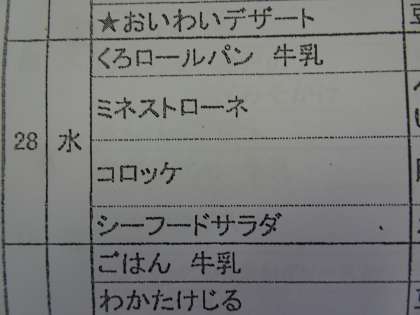 ★おいわいデザート
くろロールパン 牛乳
ミネストローネ
28 水
コロッケ
シーフードサラダ
ごはん 牛乳
わかたけじる